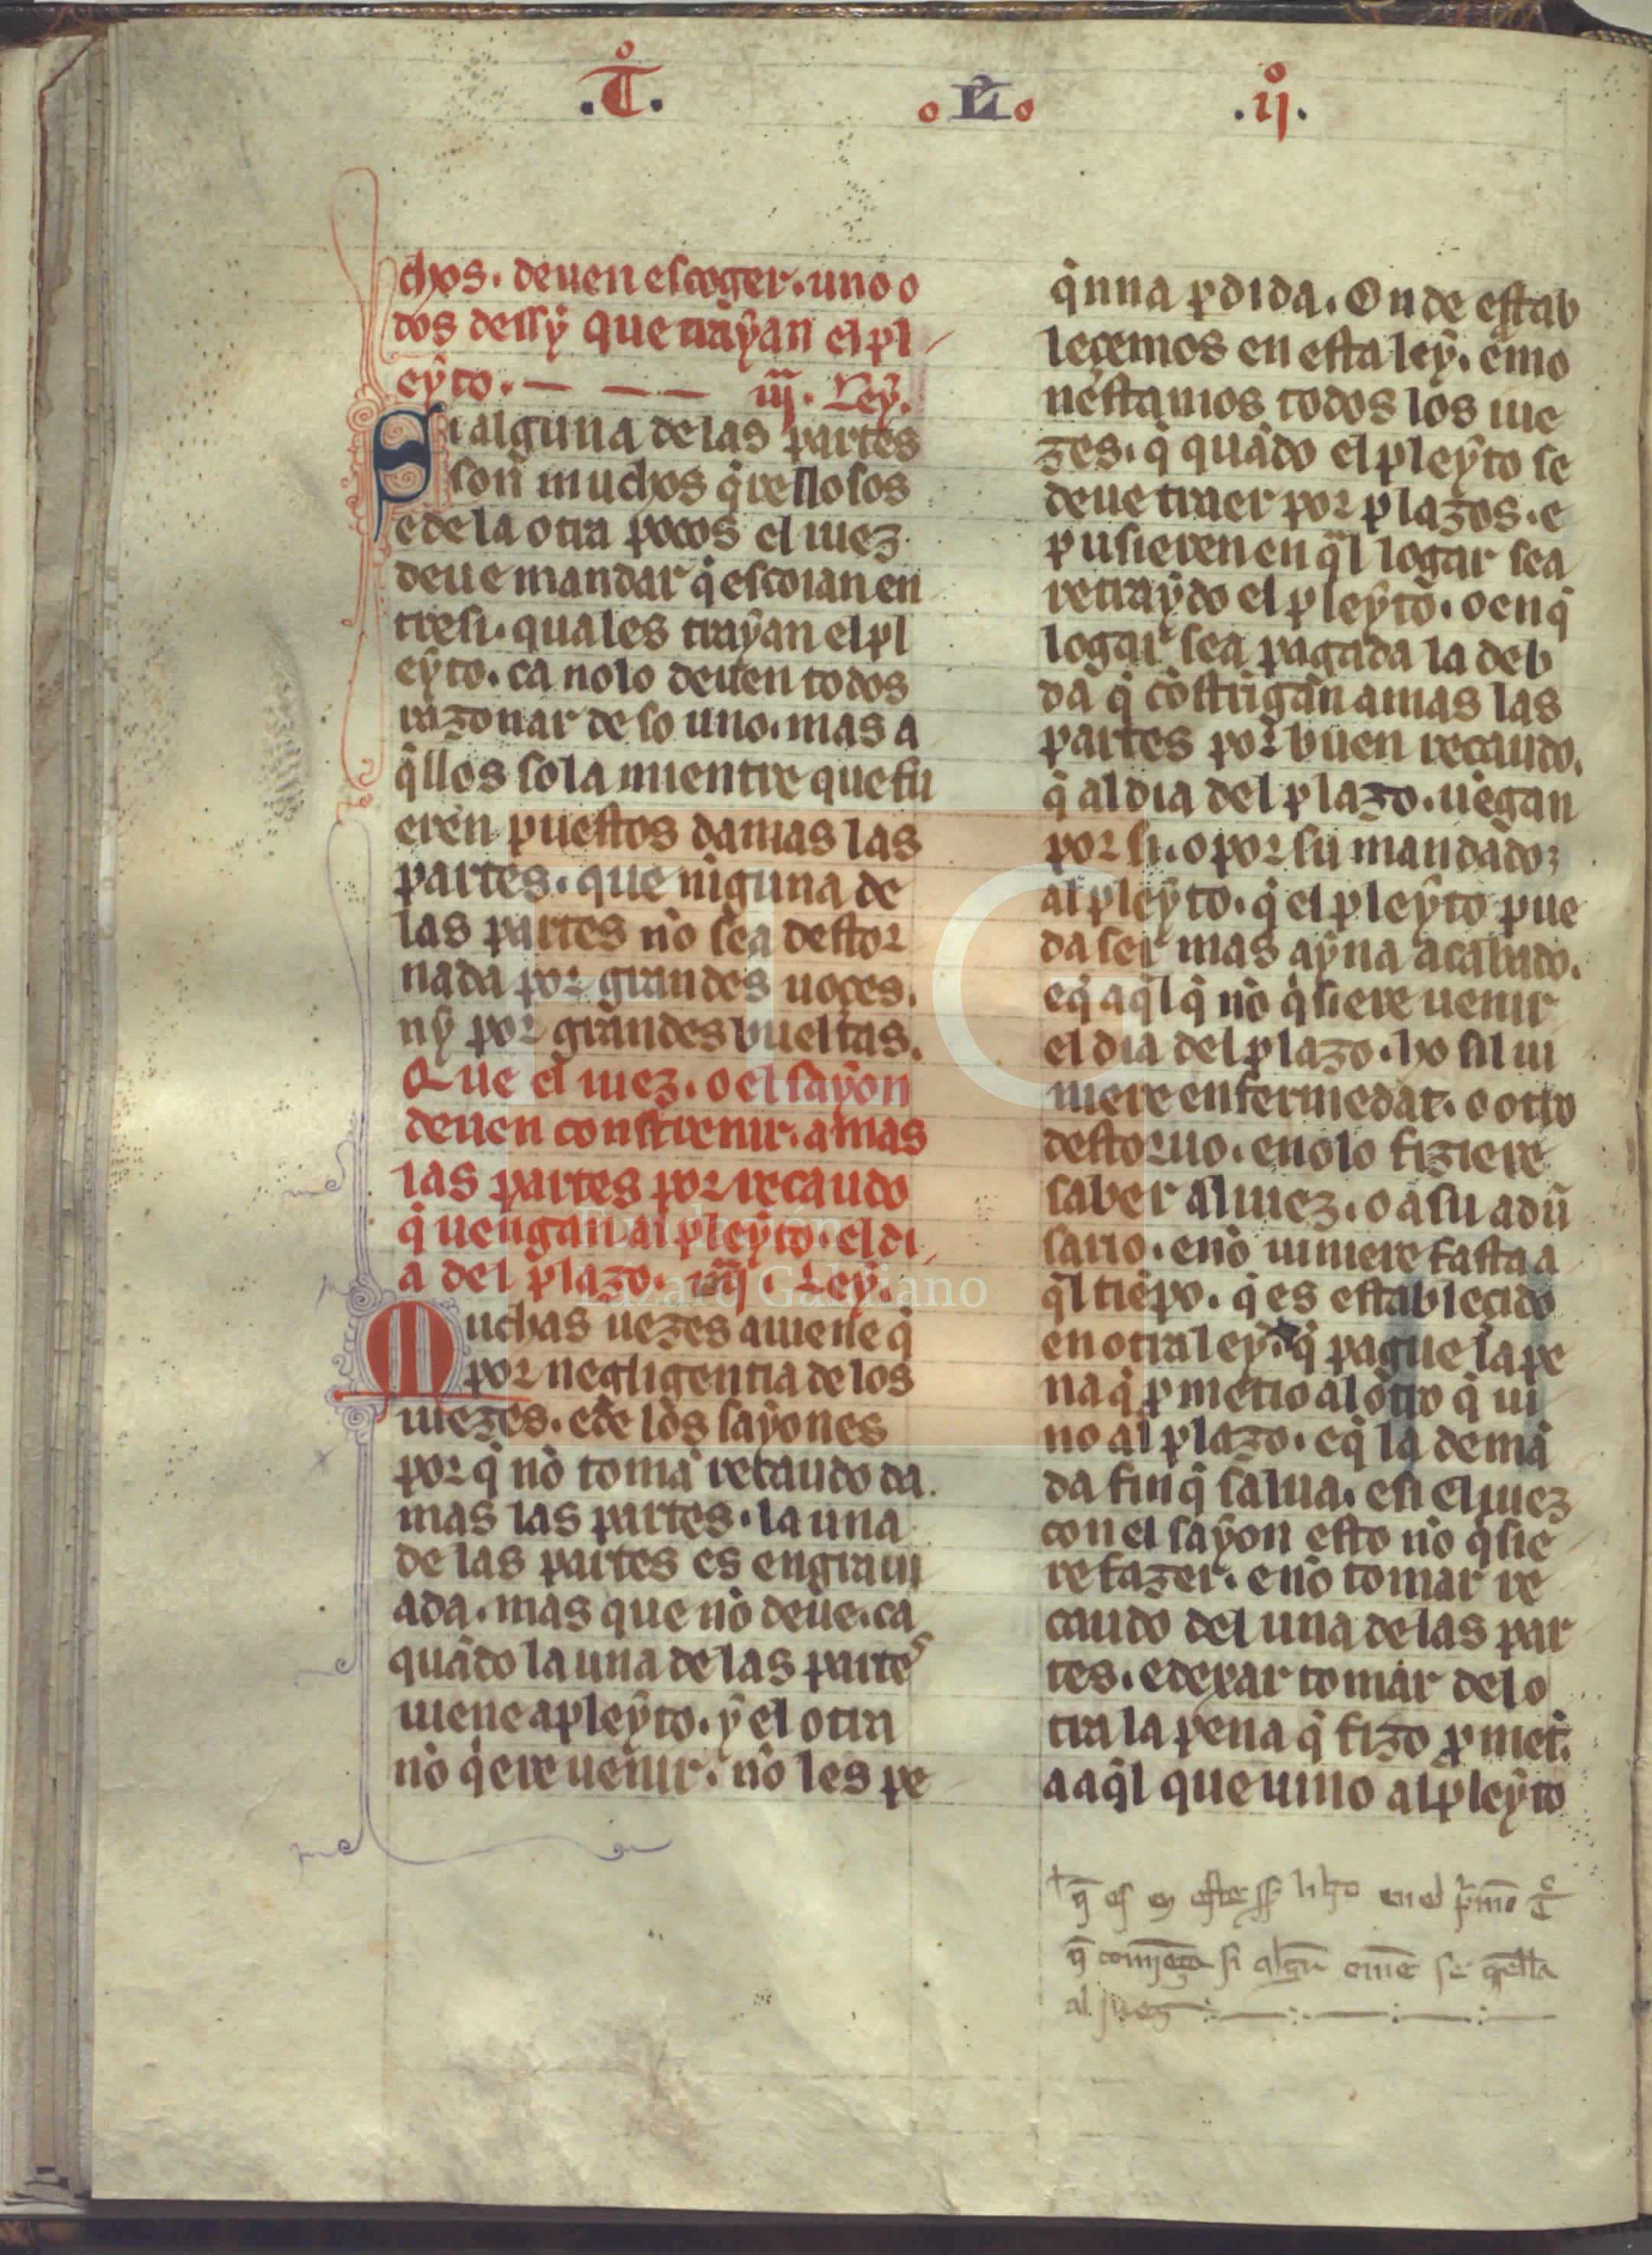 .T̊. L̊ .ij̊.
chos. deuen escoger. uno o
dos dessẏ que traẏan el pl
eẏto. — — — iij. Ley.
Si alguna de las partes
son muchos q̇rellosos
e de la otra pocos el iuez
deue mandar q̇ escoian en
tresi. quales traẏan el pl
eẏto. ca nolo deuen todos
razonar de so uno. mas a
q̇llos sola mientre que fu
eren puestos damas las
partes. que niguna de
las partes nō sea destor
nada por grandes uoçes.
nẏ por grandes bueltas.
Que el iuez. o el saẏon
deuen constrenir. amas
las partes por recaudo
q̇ uengan al pleẏto. el di
a del plazo. iiij. Leẏ.
Muchas uezes auiene q̇
por negligentia de los
iuezes. e de los saẏones
por q̇ nō tomā recaudo da
mas las partes. la una
de las partes es engraui
ada. mas que nō deue. ca
quādo la una de las partes
uiene a pleẏto. ẏ el otra
nō q̇ere uenir. nō les pe
q̇nna ꝑdida. Onde estab
leçemos en esta leẏ. e mo
nestamos todos los iue
zes. q̇ quādo el pleẏto se
deue traer por plazos. e
pusieren en q̄l logar sea
retraẏdo el pleẏto. o en q̇
logar sea pagada la deb
da q̇ cōstrigan amas las
partes por buen recaudo.
q̇ al dia del plazo. uēgan
por si. o por su mandado;
al pleẏto. q̇ el pleẏto pue
da ser mas aẏna acabado.
e q̇ aq̇l q̇ nō q̇siere uenir
el dia del plazo. ho sil ui
niere enfermedat. o otro
destoruo. e nolo fiziere
saber al iuez. o a su adū
sario. e nō uiniere fasta a
q̇l tiēpo. q̇ es establecido
en otra leẏ. q̇ pague la pe
na q̇ ꝓmetio al otro q̇ ui
no al plazo. e q̇ la demā
da finq̇ salua. e si el iuez
con el saẏon esto nō q̇sie
re fazer. e nō tomar re
caudo del una de las par
tes. e dexar tomar del o
tra la pena q̇ fizo ꝓmet̄.
a aq̇l que uino al pleẏto
q̄ es en este libro en el p̄mo T̊
q̄ comiença si algū ome se q̄lla
al juez